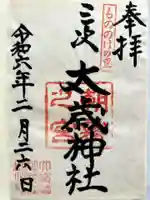 奉拝
もののけの里
三次
太歳神社
令和六年二月二六日